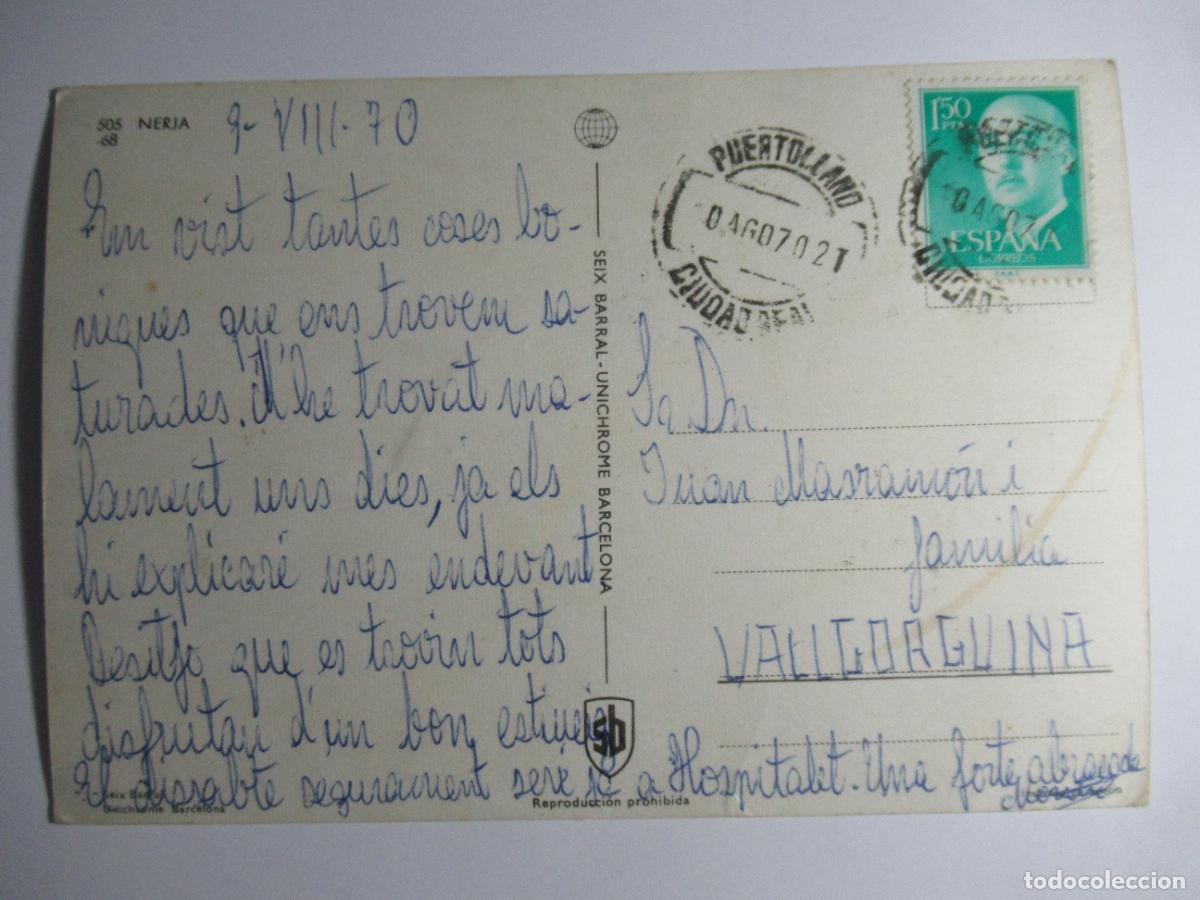 505 NERJA
68
9-VIII-70
Em vist tantes coses bo-
niques que ens trovem sa-
turades. M'he trovat ma-
lament uns dies, ja els
hi explicaré mes endevant
Desitjo que es trovin tots
disfrutan d'un bon estiueig
El dissabte segurament seré ja a Hospitalet. Una forte abraçada
SEIX BARRAL - UNICHROME BARCELONA
sb
Seix Barral
Unichrome Barcelona
Reproducción prohibida
PUERTOLLANO
0 AGO 70 21
CIUDAD REAL
1'50
PTA
ESPAÑA
CORREOS
0 AGO 7
CIUDAD R
Sr. Dn.
Juan Masramón i
familia
VALLGORGUINA
todocoleccion